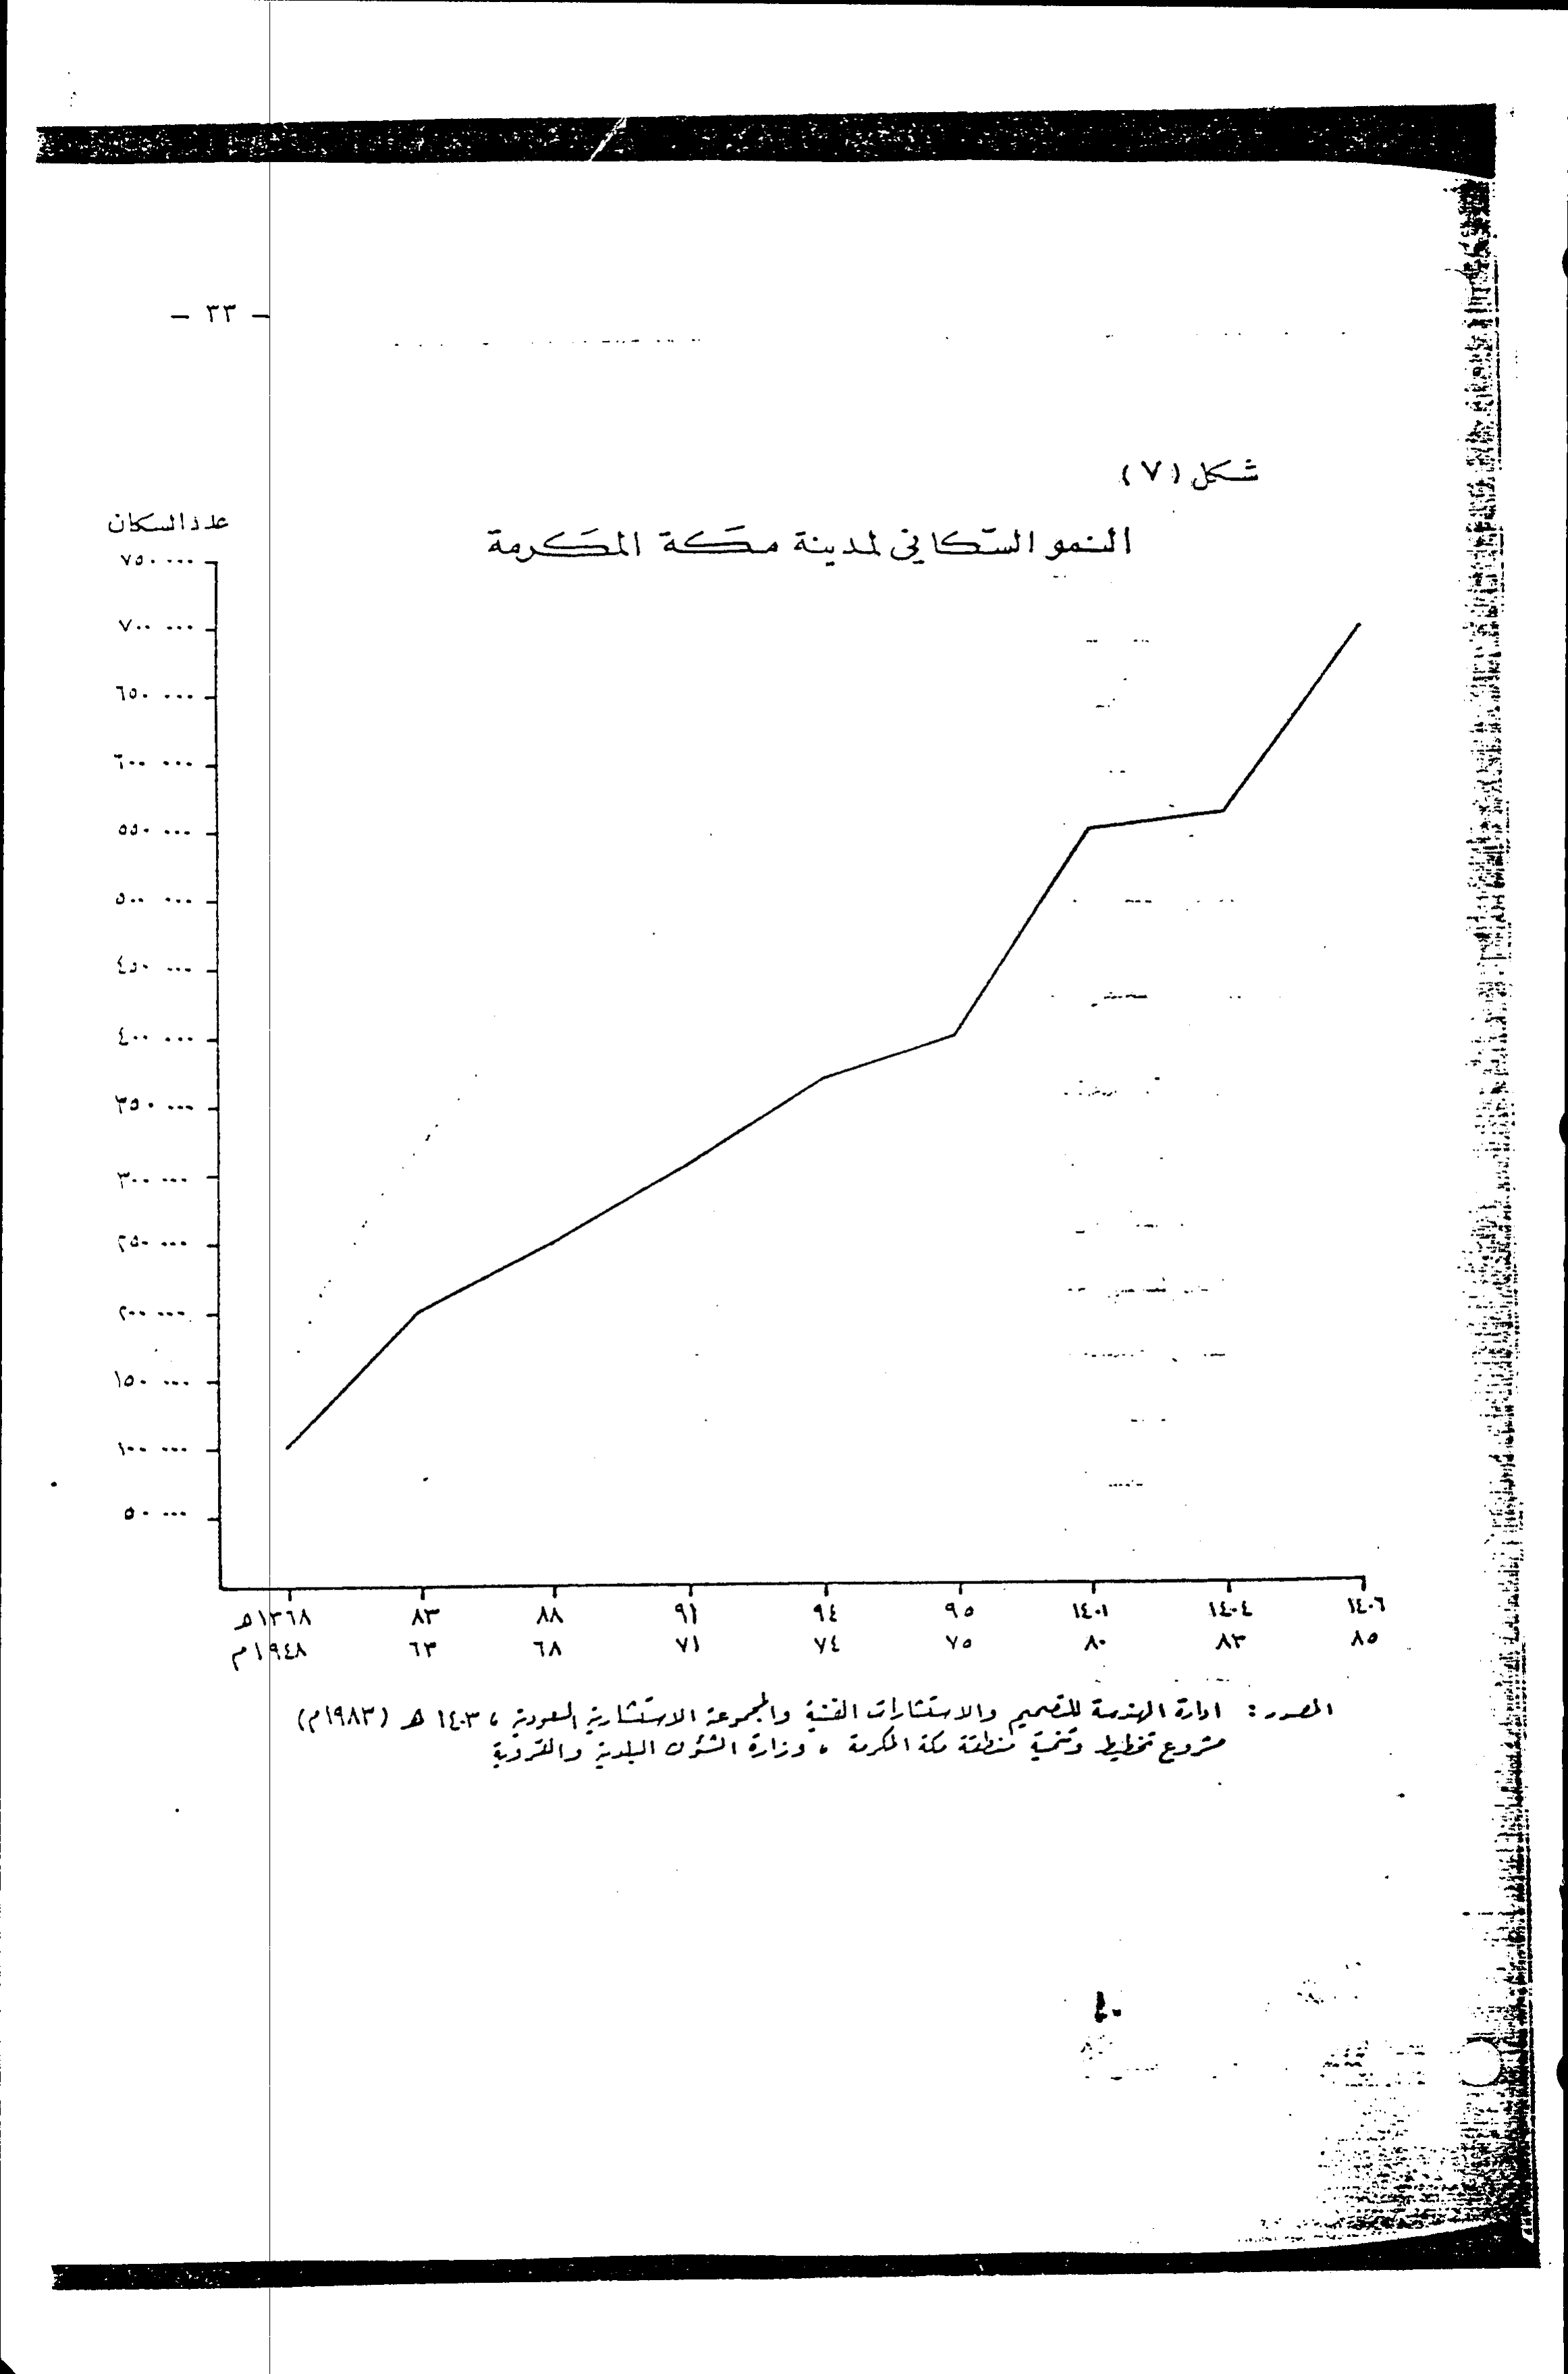 - ٣٣ -
شكل (٧)
النمو السكاني لمدينة مكة المكرمة
عدد السكان
٧٥٠ ٠٠٠
٧٠٠ ٠٠٠
٦٥٠ ٠٠٠
٦٠٠ ٠٠٠
٥٥٠ ٠٠٠
٥٠٠ ٠٠٠
٤٥٠ ٠٠٠
٤٠٠ ٠٠٠
٣٥٠ ٠٠٠
٣٠٠ ٠٠٠
٢٥٠ ٠٠٠
٢٠٠ ٠٠٠
١٥٠ ٠٠٠
١٠٠ ٠٠٠
٥٠ ٠٠٠
١٣٦٨هـ ٨٣ ٨٨ ٩١ ٩٤ ٩٥ ١٤٠١ ١٤٠٤ ١٤٠٦
١٩٤٨م ٦٣ ٦٨ ٧١ ٧٤ ٧٥ ٨٠ ٨٣ ٨٥
المصدر: ادارة الهندسة للتصميم والاستشارات الفنية والمجموعة الاستشارية السعودية ، ١٤٠٣ هـ (١٩٨٣م)
مشروع تخطيط وتنمية منطقة مكة المكرمة ، وزارة الشئون البلدية والقروية